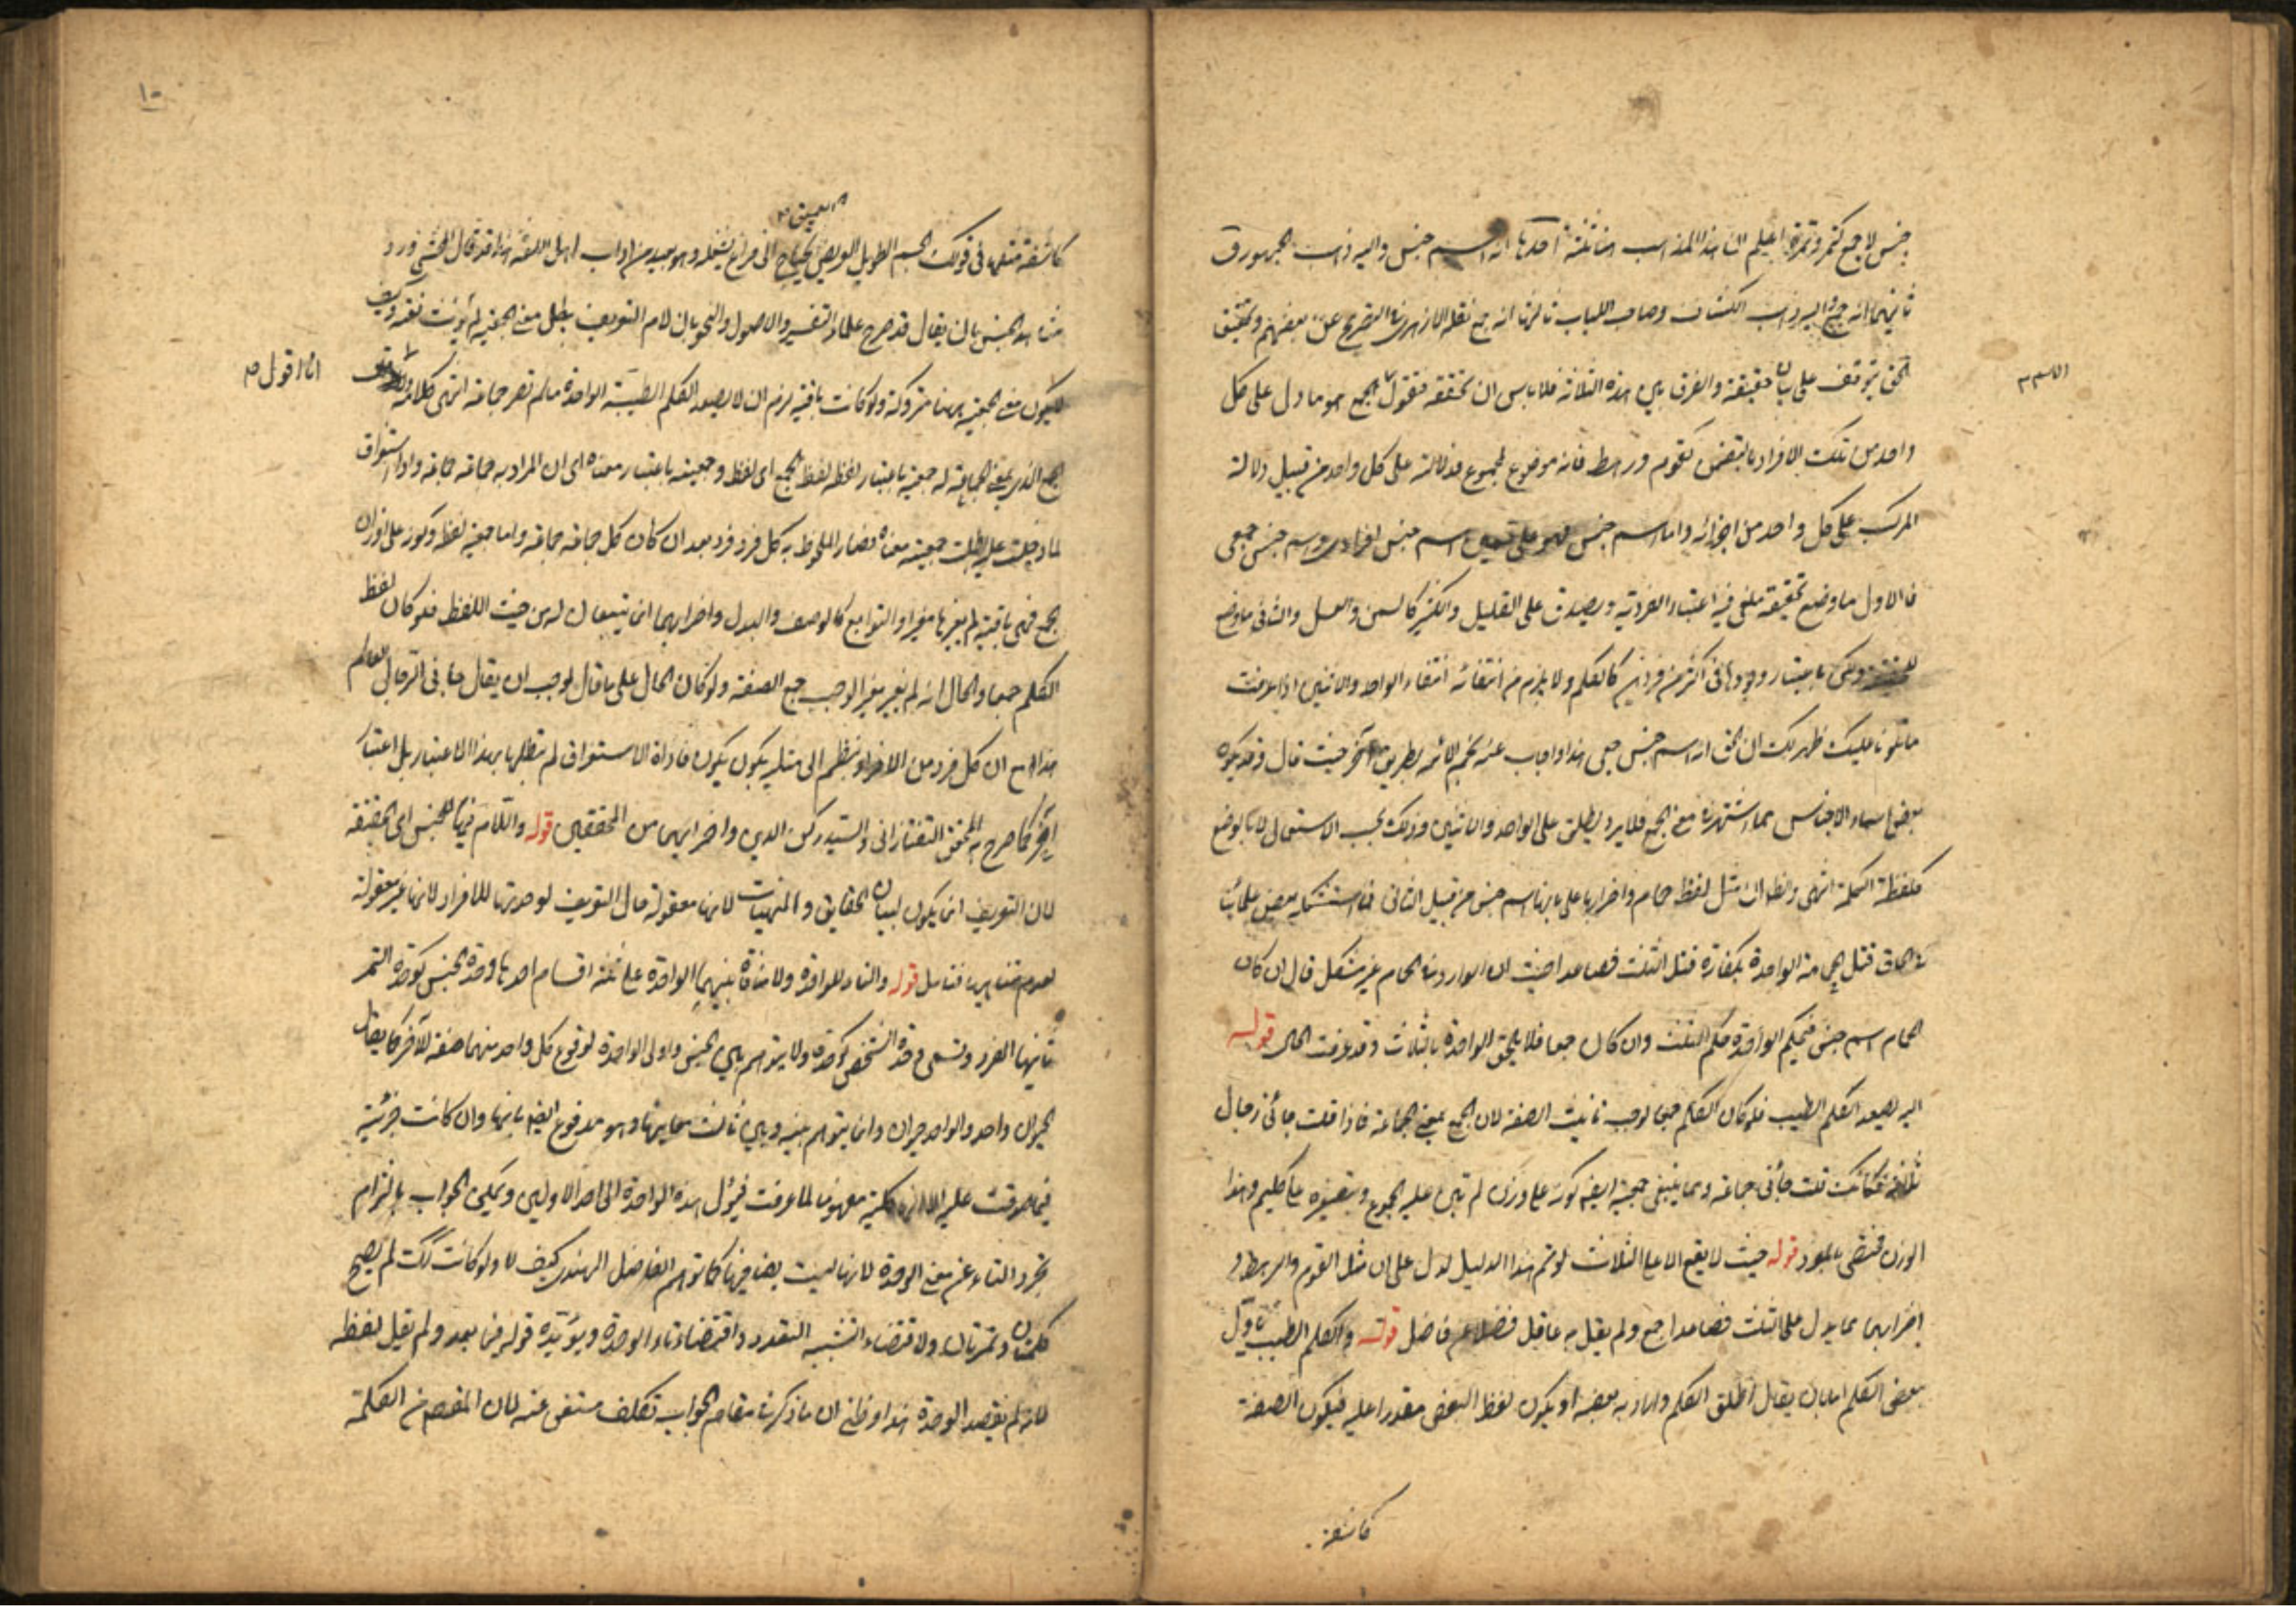 جنس لا جمع كتمر وتمرة اعلم ان هذا المذاهب هنا ثلثة احدها انه اسم جنس واليه ذهب الجمهور و
ثانيهما انه جمع واليه ذهب الكشاف وصاحب اللباب ثالثها انه جمع نقله الازهري في التصريح عن بعضهم وتحقيق
الحق يتوقف على بيان حقيقة والفرق بين هذه الثلاثة فلا باس ان نحققه فنقول الجمع هو ما دل على كل
واحد من تلك الافراد كقوم ورهط فانه موضوع لمجموع فدلالته على كل واحد من قبيل دلالة
المركب على كل واحد من اجزائه واما اسم جنس فهو على قسمين اسم جنس افرادي واسم جنس جمعي
فالاول ما وضع لحقيقة ملغى فيه اعتبار الفردية ويصدق على القليل والكثير كالسمن والعسل والثاني ما وضع
للحقيقة ولكن باعتبار وجودها في اكثر من فردين كالكلم ولا يلزم من انتفائه انتفاء الواحد والاثنين اذا عرفت
ما تلونا عليك ظهر لك ان الحق انه اسم جنس جمعي هذا واجاب عنه نجم الائمة بطريق آخر حيث قال وقد يكون
بعض اسماء الاجناس مما اشتهر في معنى الجمع فلا يرد يطلق على الواحد والاثنين وذلك بحسب الاستعمال لا بالوضع
كلفظة الكلمة انتهى والظ ان مثل لفظ حمام واضرابها على ما بها اسم جنس من قبيل الثاني فما استشكله بعض علمائنا
في الحاق قتل حمامة الواحدة بكفارة قتل الثلث فصاعدا حيث ان الوارد في الحمام غير مشكل قال ان كان
الحمام اسم جنس فحكم الواحدة حكم الثلث وان كان جمعا فلا يلحق الواحدة بالثلاث وقد عرفت الحال قوله
اليه يصعد الكلم الطيب فلو كان الكلم جمعا لوجب تانيث الصفة لان الجمع بمعنى الجماعة فاذا قلت جائني رجال
ثلاثة فكانك قلت جائني جماعة ومما ينفي جمعيته ايضا كونه على وزن لم تبن عليه الجموع وتصغيره على كليم وهذا
الوزن مختص بالمفرد قوله حيث لا يقع الا على الثلاث لو تم هذا الدليل لدل على ان مثل القوم والرهط و
اضرابهما مما يدل على الثلث فصاعدا جمع ولم يقل به عاقل فضلا عن فاضل قوله والكلم الطيب ماول
ببعض الكلم اما بان يقال اطلق الكلم واراد به بعضه او يكون لفظ البعض مقدرا عليه فيكون الصفة
كاشفة
١٠
العميق
كاشفة مثلها في قولك الجسم الطويل العريض يحتاج الى فراغ يشغله وهو بعيد من اداب اهل اللغة هذا وقد قال المحشي ورد
هذا بان يقال قد صرح علماء التفسير والاصول والنحو بان لام التعريف يبطل معنى الجمعية
فيكون معنى الجمعية ههنا متروكة ولو كانت باقية لزم ان لا يصعد الكلم الطيبة الواحدة ما لم تصر جماعة انتهى كلامه
انا اقول
الجمع الذي بمعنى الجماعة له جمعية باعتبار لفظه لفظ الجمع اي لفظ وجمعية باعتبار معناه اي ان المراد به جماعة جماعة واداة استغراق
لما دخلت عليه بطلت جمعية معناه فصار الملحوظ به كل فرد فرد بعد ان كان كل جماعة جماعة واما جمعية لفظ وكونه على اوزان
الجمع فهي باقية لم يغيرها مغير او التوابع كالوصف والبدل واضرابهما انما يتبعان له من حيث اللفظ فلو كان لفظ
الكلم جمعا والحال انه لم يغيره مغير لوجب جمع الصفة ولو كان الحال على ما قال لوجب ان يقال جائني الرجال العالم
هذا مع ان كل فرد من الافراد فاداة الاستغراق لم تبطلها بهذا الاعتبار بل اعتبار
آخر كما صرح به المحقق التفتازاني والسيد ركن الدين واضرابهما من المحققين قوله واللام فيها للجنس اي الحقيقة
لان التعريف انما يكون لبيان الحقايق والمهيات لانها معقولة حال التعريف لوحدتها لا للافراد لانها غير معقولة
لعدم تناهيها فتامل قوله والتاء للوحدة ولا منافاة بينهما الوحدة على ثلثة اقسام احدها وحدة الجنس كوحدة التمر
ثانيها الفرد وتسمى وحدة الشخص كوحدة ولا يتوهم بين الجنس واولى الوحدة لوقوع كل واحد منهما صفة للآخر كما يقال
الحيوان واحد والواحد حيوان وانما يتوهم بينه وبين ثالث معانيها وهو مدفوع ايضا بانها وان كانت جزئية
فيما صدقت عليه الا انها كلية مفهوما لما عرفت فيؤل هذه الواحدة الى احد الاوليين ويمكن الجواب بالتزام
تجرد التاء عن معنى الوحدة لانها ليست بضا فيها كما توهم الفاضل الهندي كيف لا ولو كانت كك لم يصح
كلمتان وتمرتان ولا قتضاء التثنية التعدد واقتضاء تاء الوحدة ويؤيده قوله فيما بعد ولم يقل لفظه
لانه لم يقصد الوحدة هذا وظني ان ما ذكر في مقام الجواب تكلف مستغنى عنه لان المقصود من الكلمة